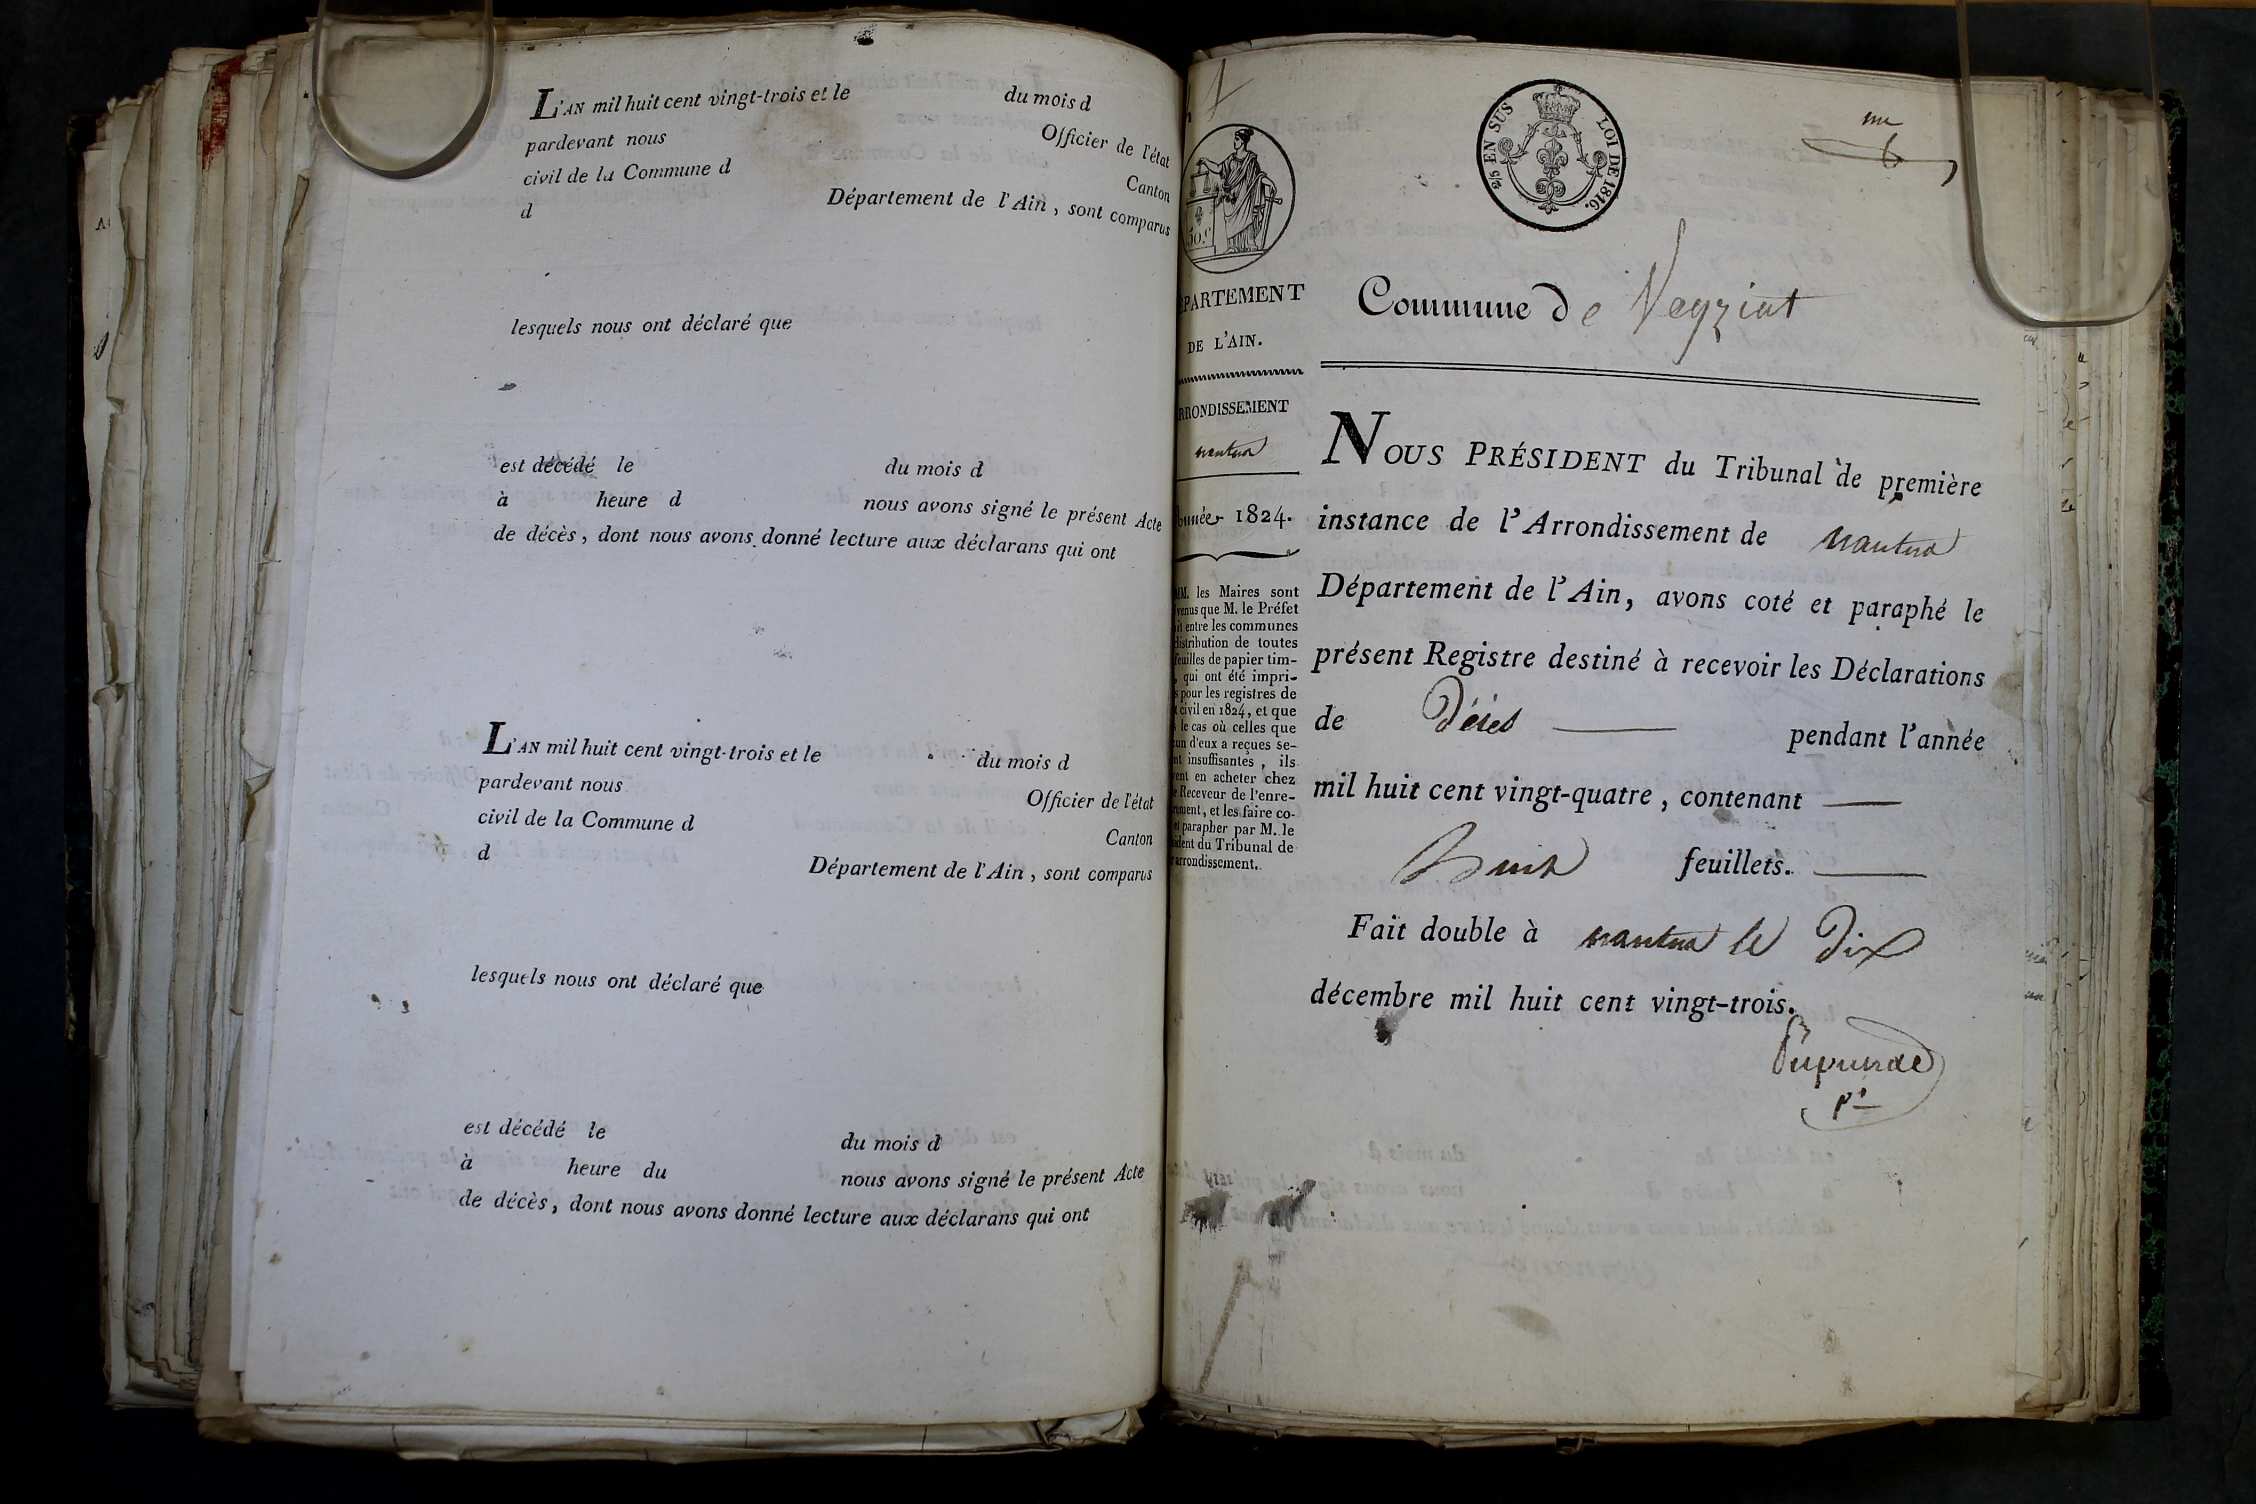 L'AN mil huit cent vingt-trois et le du mois d
pardevant nous Officier de l'état
civil de la Commune d Canton
d Département de l'Ain, sont comparus
lesquels nous ont déclaré que
est décédé le du mois d
à heure d nous avons signé le présent Acte
de décès, dont nous avons donné lecture aux déclarans qui ont
L'AN mil huit cent vingt-trois et le du mois d
pardevant nous Officier de l'état
civil de la Commune d Canton
d Département de l'Ain, sont comparus
lesquels nous ont déclaré que
est décédé le du mois d
à heure du nous avons signé le présent Acte
de décès, dont nous avons donné lecture aux déclarans qui ont
50.c
EPARTEMENT
DE L'AIN.
RRONDISSEMENT
nantua
nnée 1824.
MM. les Maires sont
venus que M. le Préfet
it entre les communes
distribution de toutes
feuilles de papier tim-
, qui ont été impri-
s pour les registres de
t civil en 1824, et que
le cas où celles que
un d'eux a reçues se-
nt insuffisantes, ils
ent en acheter chez
e Receveur de l'enre-
ement, et les faire co-
et parapher par M. le
sident du Tribunal de
arrondissement.
2/5 EN SUS LOI DE 1816.
Commune de Veyziat
NOUS PRÉSIDENT du Tribunal de première
instance de l'Arrondissement de nantua
Département de l'Ain, avons coté et paraphé le
présent Registre destiné à recevoir les Déclarations
de Décès pendant l'année
mil huit cent vingt-quatre, contenant
huit feuillets.
Fait double à nantua le Dix
décembre mil huit cent vingt-trois.